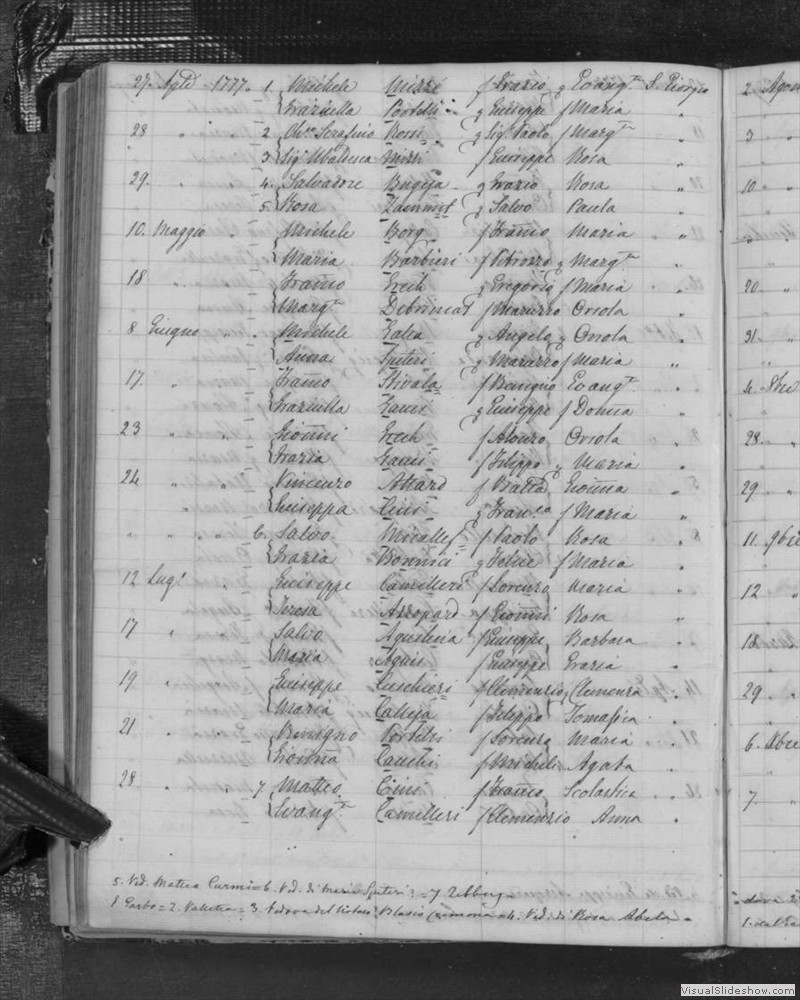 27. Agto 1777. 1 Michele Mizzi f Grazio q Evangta S. Giorgio
Graziulla Portelli q Giuseppe f Maria "
28 " " 2 Chro Serafino Rossi q Sigr Paolo f Margta "
3 Sigra Ubaldesca Mizzi f Giuseppe Rosa "
29. " 4. Salvadore Bugeja q Grazio Rosa "
5. Rosa Zammit q Salvo Paula "
10. Maggio " Michele Borg f Franco Maria "
Maria Barbieri f Vitorzo q Margta "
18 " Franco Grech q Gregorio f Maria "
Margta Debrincat f Maruzzo Orsola "
8 Giugno " Michele Galea q Angelo q Orsola "
Anna Spiteri q Maruzzo f Maria "
17. " Franco Stivala f Benigno Evangta "
Graziulla Gauci q Giuseppe f Domca "
23 " " Gionni Grech f Alonzo Orsola "
Grazia Gauci f Filippo q Maria "
24 " " Vincenzo Attard f Batta Gionna "
Giuseppa Cini q Franco f Maria "
" " " 6. Salvo Micallef f Paolo Rosa "
Grazia Bonnici q Felice f Maria "
12 Lugl. Giuseppe Camilleri f Lorenzo Maria "
Teresa Azzopard f Gionni Rosa "
17 " Salvo Aquilina f Giuseppe Barbara "
Maria Agius f Giuseppe Grazia "
19 " Giuseppe Cuschieri f Clemenzio q Clemenza "
Maria Calleja f Filippo Tomasica "
21 " Benigno Portelli f Lorenzo Maria "
Gionna Cauchi f Michele Agata "
28 " " 7 Matteo Cini f Franco Scolastica "
Evangta Camilleri f Clemenzio Anna "
5. Ved. Matteo Curmi = 6. Ved. di Maria Spiteri = 7 Zebbug =
1 Garbo = 2. Valletta = 3. Vedova del Blasio = 4. Ved. di Rosa Abela =
2 Agos
3 "
10 "
20 "
31. "
28. "
29 "
11. 9bre
12 "
18
29. "
6. Xbre
7 "
VisualSlideshow.com